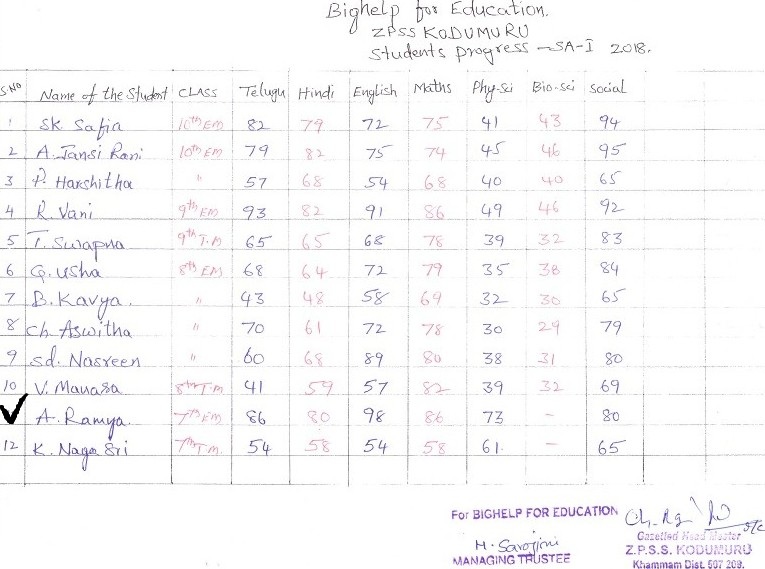 Bighelp for Education.
ZPSS KODUMURU
Students progress - SA-I 2018.
S.No Name of the Student CLASS Telugu Hindi English Maths Phy-sci Bio-sci Social
1 SK. Safia 10th EM 82 79 72 75 41 43 94
2 A. Jansi Rani 10th EM 79 82 75 74 45 46 95
3 P. Harshitha " 57 68 54 68 40 40 65
4 R. Vani 9th EM 93 82 91 86 49 46 92
5 T. Swapna 9th T.M 65 65 68 78 39 32 83
6 G. Usha 8th EM 68 64 72 79 35 38 84
7 B. Kavya. " 43 48 58 69 32 30 65
8 Ch. Aswitha " 70 61 72 78 30 29 79
9 Sd. Nasreen " 60 68 89 80 38 31 80
10 V. Manasa 8th T.M 41 59 57 82 39 32 69
A. Ramya. 7th EM 86 80 98 86 73 - 80
12 K. Naga Sri 7th T.M. 54 58 54 58 61. - 65
For BIGHELP FOR EDUCATION
M. Sarojini
MANAGING TRUSTEE
Gazetted Head Master
Z.P.S.S. KODUMURU
Khammam Dist. 507 209.